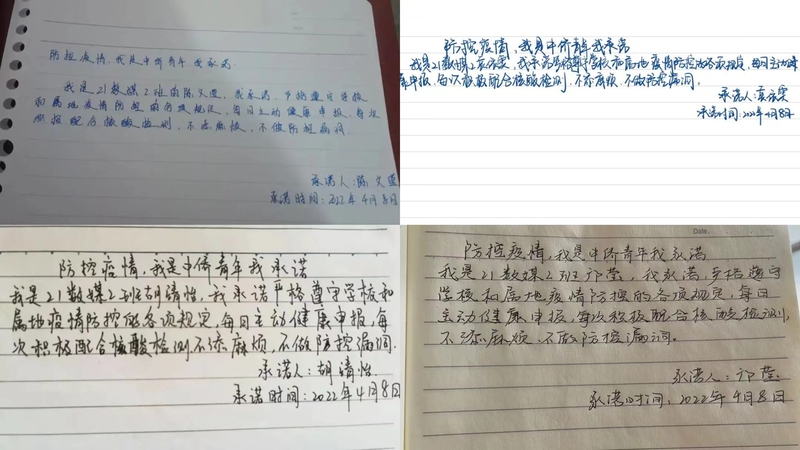 防控疫情,我是中侨青年 我承诺
我是21数媒2班的陈文莲,我承诺,严格遵守学校
和属地疫情防控的各项规定,每日主动健康申报,每次
积极配合核酸检测,不添麻烦,不做防控漏洞
承诺人:陈文莲
承诺时间:2022年4月8日
防控疫情,我是中侨青年我承诺
我是21数媒2 我承诺严格遵守学校和属地疫情防控的各项规定,每日主动健
康申报,每次积极配合核酸检测,不添麻烦,不做防控漏洞。
承诺人:
承诺时间:2022年4月8日
防控疫情,我是中侨青年我承诺
我是21数媒2班胡婧怡,我承诺严格遵守学校和
属地疫情防控的各项规定,每日主动健康申报,每
次积极配合核酸检测不添麻烦,不做防控漏洞。
承诺人:胡婧怡
承诺时间:2022年4月8日
Date.
防控疫情,我是中侨青年我承诺
我是21数媒2班邝莹,我承诺,严格遵守
学校和属地疫情防控的各项规定,每日
主动健康申报,每次积极配合核酸检测,
不添麻烦,不做防控漏洞。
承诺人:邝莹
承诺时间:2022年4月8日